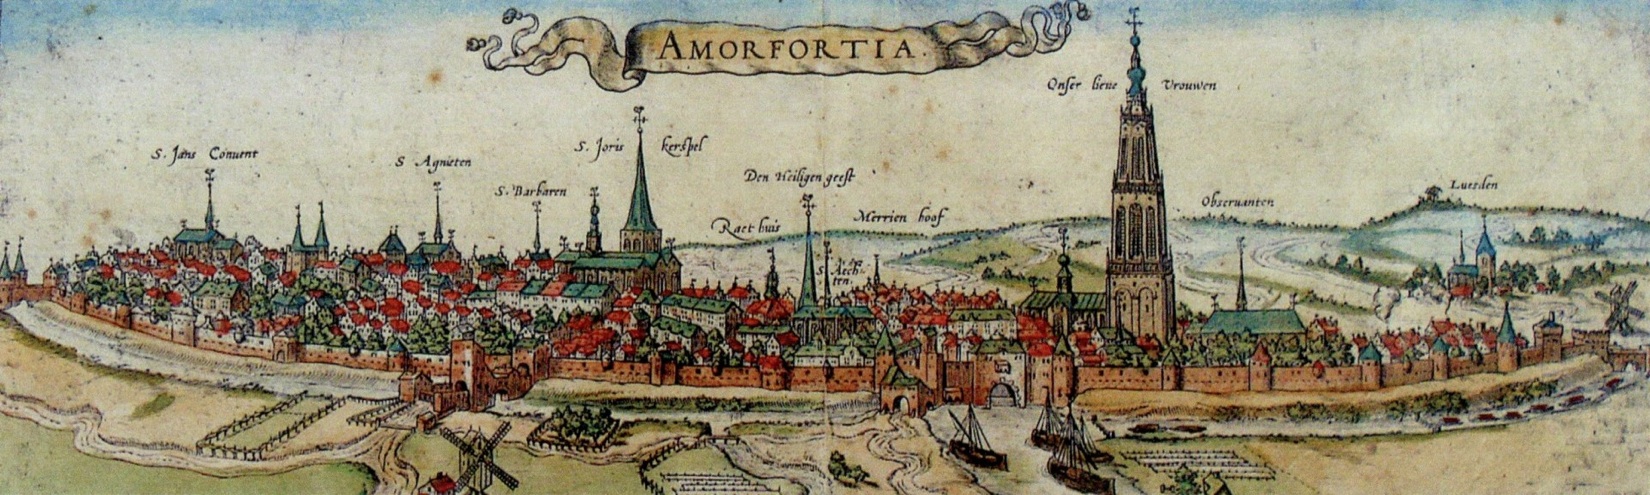 AMORFORTIA.
Onser lieue Vrouwen
S. Jans Conuent
S Agnieten
S. Joris kerspel
S. Barbaren
Den Heiligen geest
Raet huis
Merrien hoof
Obseruanten
Luesden
S. Aech-
ten.